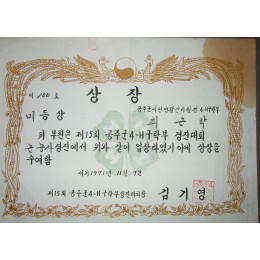 제 100 호
상장
미등상
최근학
위 부원은 제15회 공주군 4-H구락부 경진대회
에서 위와 같이 입상하였기 이에 상장을
수여함
서기1971년 11월 9일
제15회 공주군4-H구락부경진대회장 김기영